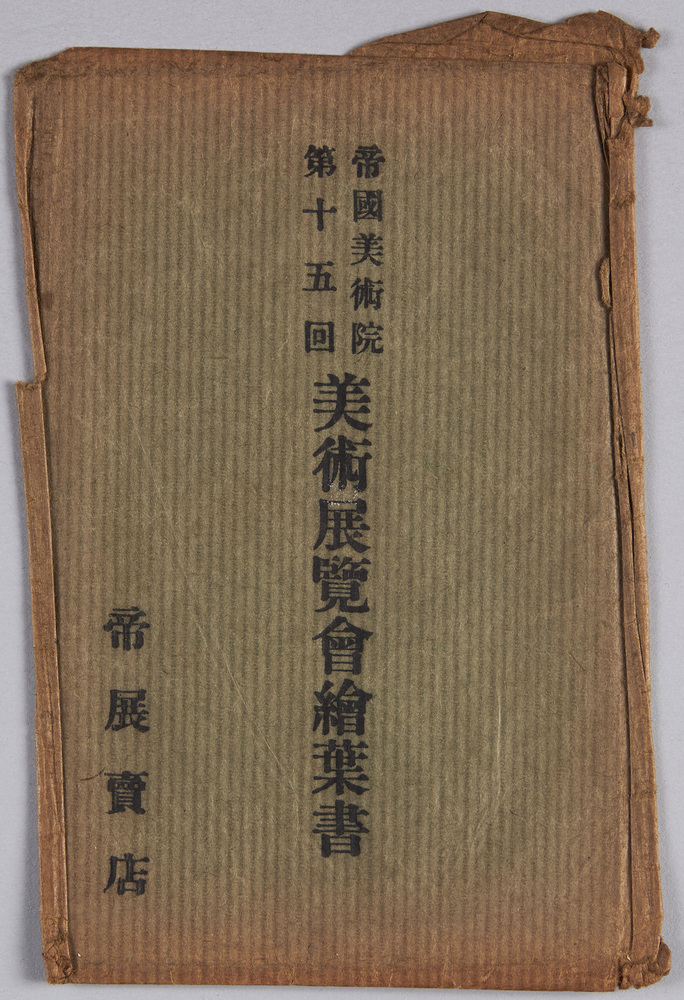 帝國美術院
第十五回
美術展覽會繪葉書
帝展賣店